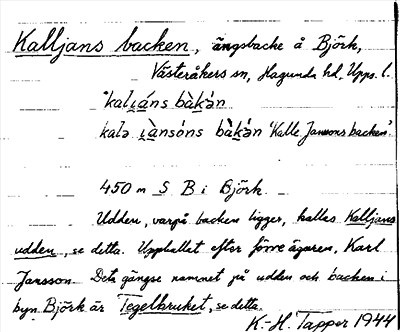 Kalljans backen, ängsbacke å Björk,
Västeråkers sn, Hagunda hd, Upps. l.
*kalɩáns bàkən
kalə ɩànsóns bàkən 'Kalle Jansons backen'.
450 m S B i Björk.
Udden, varpå backen ligger, kallas Kalljans
udden, se detta. Uppkallat efter förre ägaren, Karl
Jansson. Det gängse namnet på udden och backen i
byn Björk är Tegelbruket, se detta.
K.-H. Tapper 1944